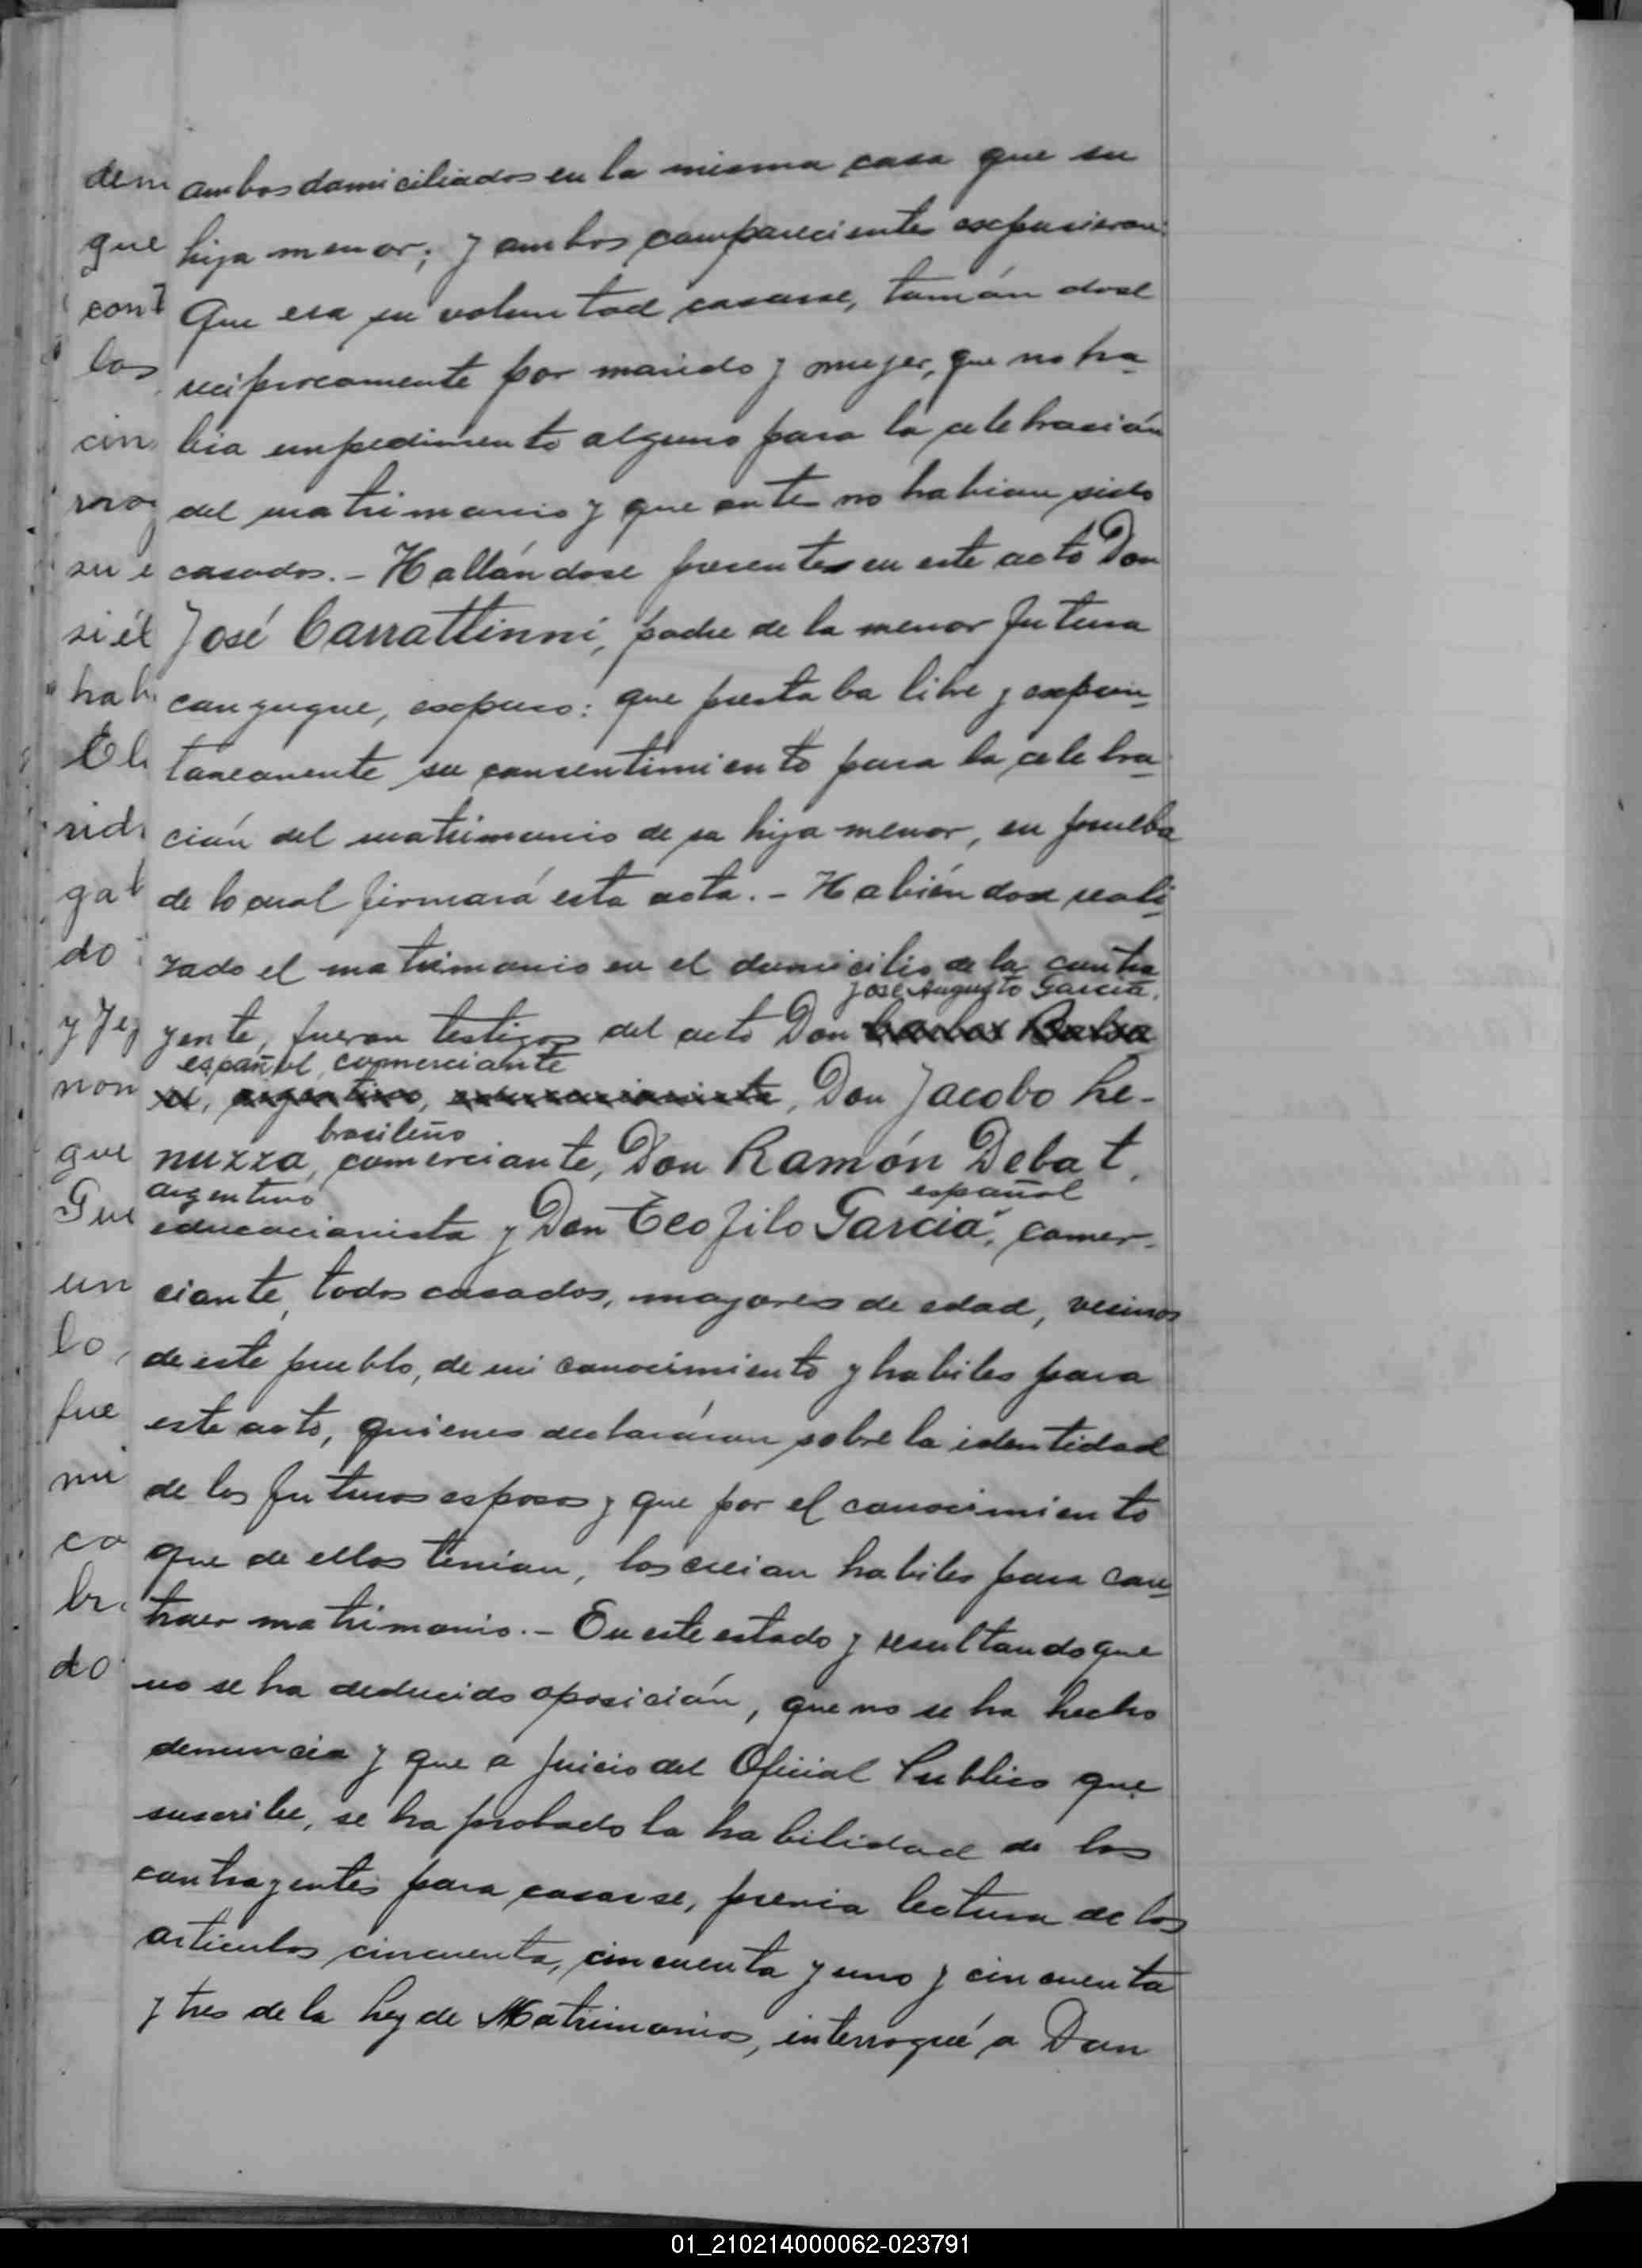 ambos domiciliados en la misma casa que su
hija menor; y ambos comparecientes expusieron:
Que era su voluntad casarse, tomándose
recíprocamente por marido y mujer, que no ha-
bia impedimento alguno para la celebración
del matrimonio y que antes no habian sido
casados.- Hallándose presentes en este acto Don
José Carrattinni, padre de la menor futura
conyugue, expuso: que prestaba libre y expon-
taneamente su consentimiento para la celebra-
ción del matrimonio de su hija menor, en prueba
de lo cual firmará esta acta.- Habiéndose reali-
zado el matrimonio en el domicilio de la contra
José Augusto García,
yente, fueron testigos del acto Don
español, comerciante
Don Jacobo Le-
brasileño
nuzza, comerciante, Don Ramón Debat,
argentino español
educacionista y Don Teofilo García, comer-
ciante, todos casados, mayores de edad, vecinos
de este pueblo, de mi conocimiento y habiles para
este acto, quienes declararon sobre la identidad
de los futuros esposos y que por el conocimiento
que de ellos tenian, los creian habiles para con-
traer matrimonio.- En este estado y resultando que
no se ha deducido oposición, que no se ha hecho
denuncia y que a juicio del Oficial Publico que
suscribe, se ha probado la habilidad de los
contrayentes para casarse, previa lectura de los
articulos cincuenta, cincuenta y uno y cincuenta
y tres de la Ley de Matrimonios, interrogué a Don
dem
que
cont
los
cin
su e
si él
hab
rid
gat
do
y Jej
non
que
Gue
un
lo,
fue
mi
co
br
do
01_210214000062-023791